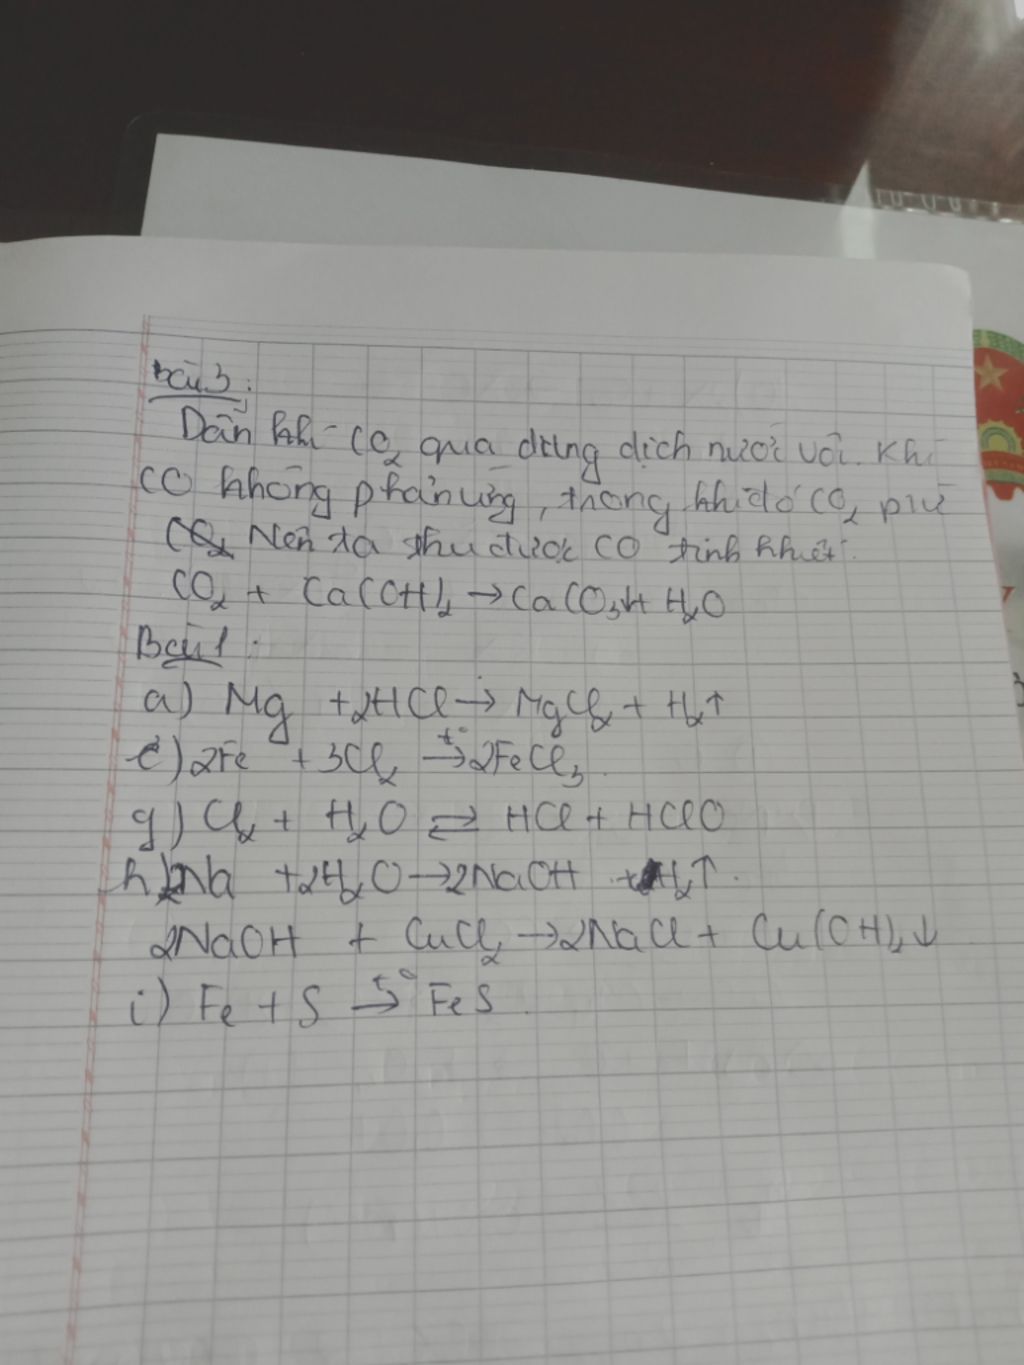 bài 3:
Dẫn khí CO₂ qua dung dịch nước vôi. Khí
CO không phản ứng, trong khi đó CO₂ pứ
CO₂ Nên ta thu được CO tinh khiết.
CO₂ + Ca(OH)₂ → CaCO₃↓ + H₂O
Bài 1:
a) Mg + 2HCl → MgCl₂ + H₂↑
e) 2Fe + 3Cl₂ t°→ 2FeCl₃.
g) Cl₂ + H₂O ⇌ HCl + HClO
h) 2Na + 2H₂O → 2NaOH + H₂↑.
2NaOH + CuCl₂ → 2NaCl + Cu(OH)₂↓
i) Fe + S t°→ FeS